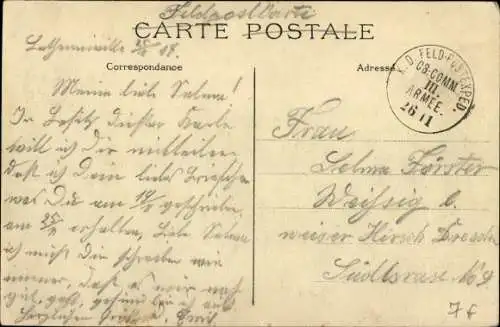 Feldpostkarte
CARTE POSTALE
Correspondance
Adresse
K. D. FELD-POSTEXPED.
CB-COMM.
III.
ARMEE.
26 11
Meine liebe Selma!
In Besitz dieser Karte
will ich Dir mitteilen
daß ich Dein liebes
was Du am geschrieben
am erhalten, Liebe Selma
ich muß Dir schreiben wie
immer, daß es mir noch
gut geht, gesund bin ich auch
Herzlichen Emil
Frau
Selma Förster
Weißig b.
weiser Hirsch Dresden
Südstrase No 9
7 £